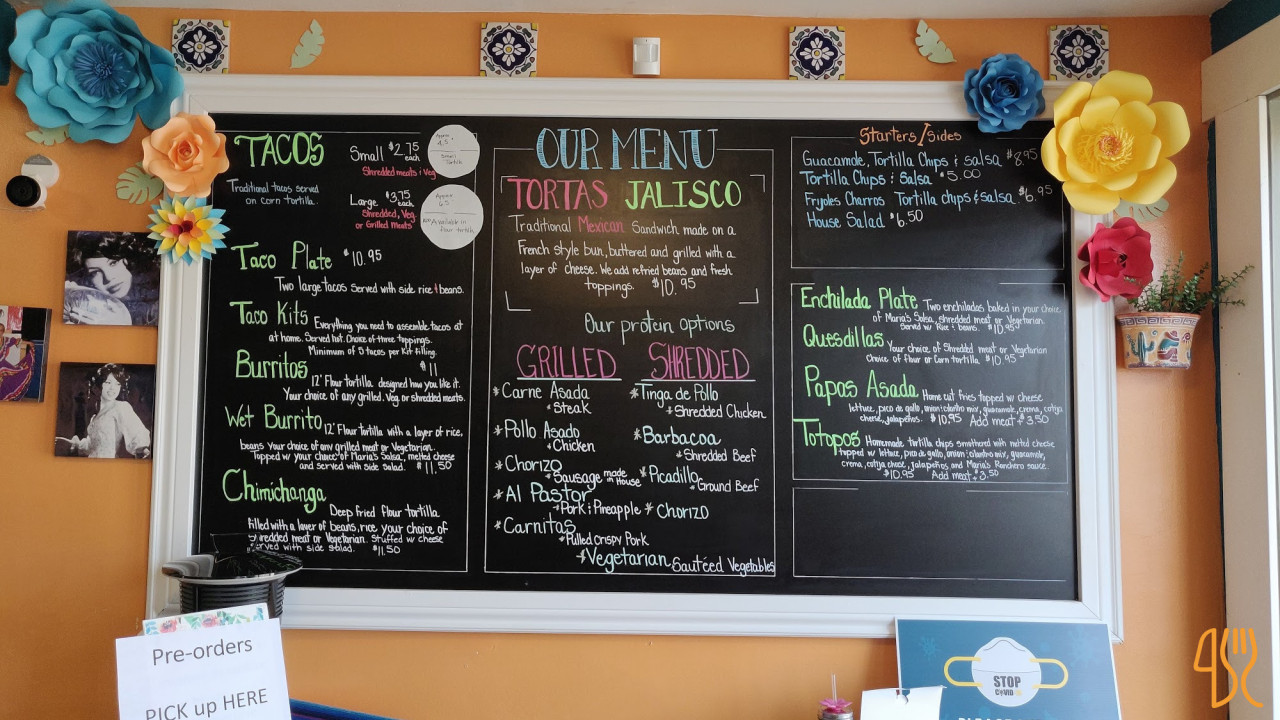 TACOS
Small $2.75 each
Shredded meats & Veg
Approx 4.5"
Small Tortilla
Traditional tacos served
on corn tortilla.
Large $3.75 each
Shredded, Veg.
or Grilled Meats
Approx 6.5"
Available in
flour tortilla
Taco Plate $10.95
Two large tacos served with side rice & beans.
Taco Kits Everything you need to assemble tacos at
at home. Served hot. Choice of three toppings.
Minimum of 5 tacos per kit filling.
Burritos $11
12" Flour tortilla designed how you like it.
Your choice of any grilled. Veg or shredded meats.
Wet Burrito 12" Flour tortilla with a layer of rice,
beans your choice of any grilled meat or Vegetarian.
Topped w/ your choice of Maria's Salsa, melted cheese
and served with side salad. $11.50
Chimichanga Deep fried Flour tortilla
filled with a layer of beans, rice your choice of
shredded meat or Vegetarian. Stuffed w/ cheese
served with side salad. $11.50
OUR MENU
TORTAS JALISCO
Traditional Mexican Sandwich made on a
French style bun, buttered and grilled with a
layer of cheese. We add refried beans and fresh
toppings. $10.95
Our protein options
GRILLED
* Carne Asada
* Steak
* Pollo Asado
* Chicken
* Chorizo
* Sausage made in House
* Al Pastor
* Pork & Pineapple
* Carnitas
* Pulled crispy Pork
SHREDDED
* Tinga de Pollo
* Shredded Chicken
* Barbacoa
* Shredded Beef
* Picadillo
* Ground Beef
* Chorizo
* Vegetarian Sautéed Vegetables
Starters/Sides
Guacamole, Tortilla Chips & salsa $8.95
Tortilla Chips & Salsa $5.00
Fryoles Charros Tortilla chips & salsa $6.95
House Salad $6.50
Enchilada Plate Two enchiladas baked in your choice
of Maria's Salsa, shredded meat or Vegetarian.
Served w/ Rice & beans. $10.95
Quesdillas Your choice of Shredded meat or Vegetarian
Choice of flour or Corn tortilla. $10.95
Papas Asada Home cut fries topped w/ cheese
lettuce, pico de gallo, onion & cilantro mix, guacamole, crema, cotija
cheese, jalapeños. $10.95 Add meat $3.50
Totopos Homemade tortilla chips smothered with melted cheese
topped w/ lettuce, pico de gallo, onion & cilantro mix, guacamole,
crema, cotija cheese, jalapeños and Maria's Ranchero sauce.
$10.95 Add meat $3.50
Pre-orders
PICK up HERE
STOP
COVID